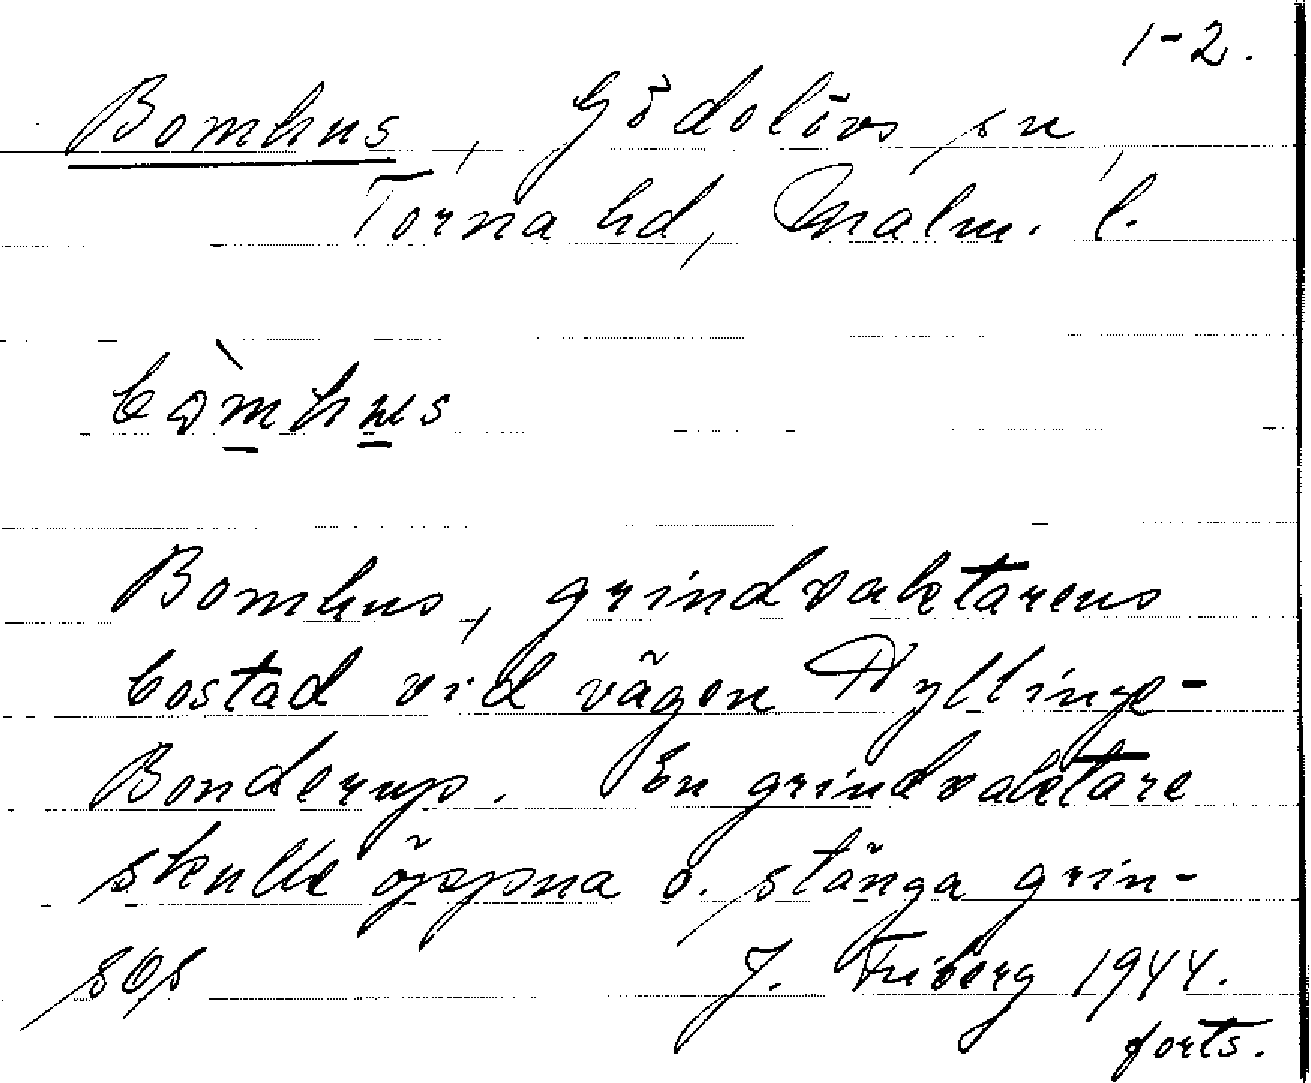 1-2.
Bomhus, Gödelövs sn,
Torna hd, Malm. l.
bòmhus
Bomhus, grindvaktarens
bostad vid vägen Hyllinge-
Bonderup. En grindvaktare
skulle öppna o. stänga grin-
J. Friberg 1944.
forts.